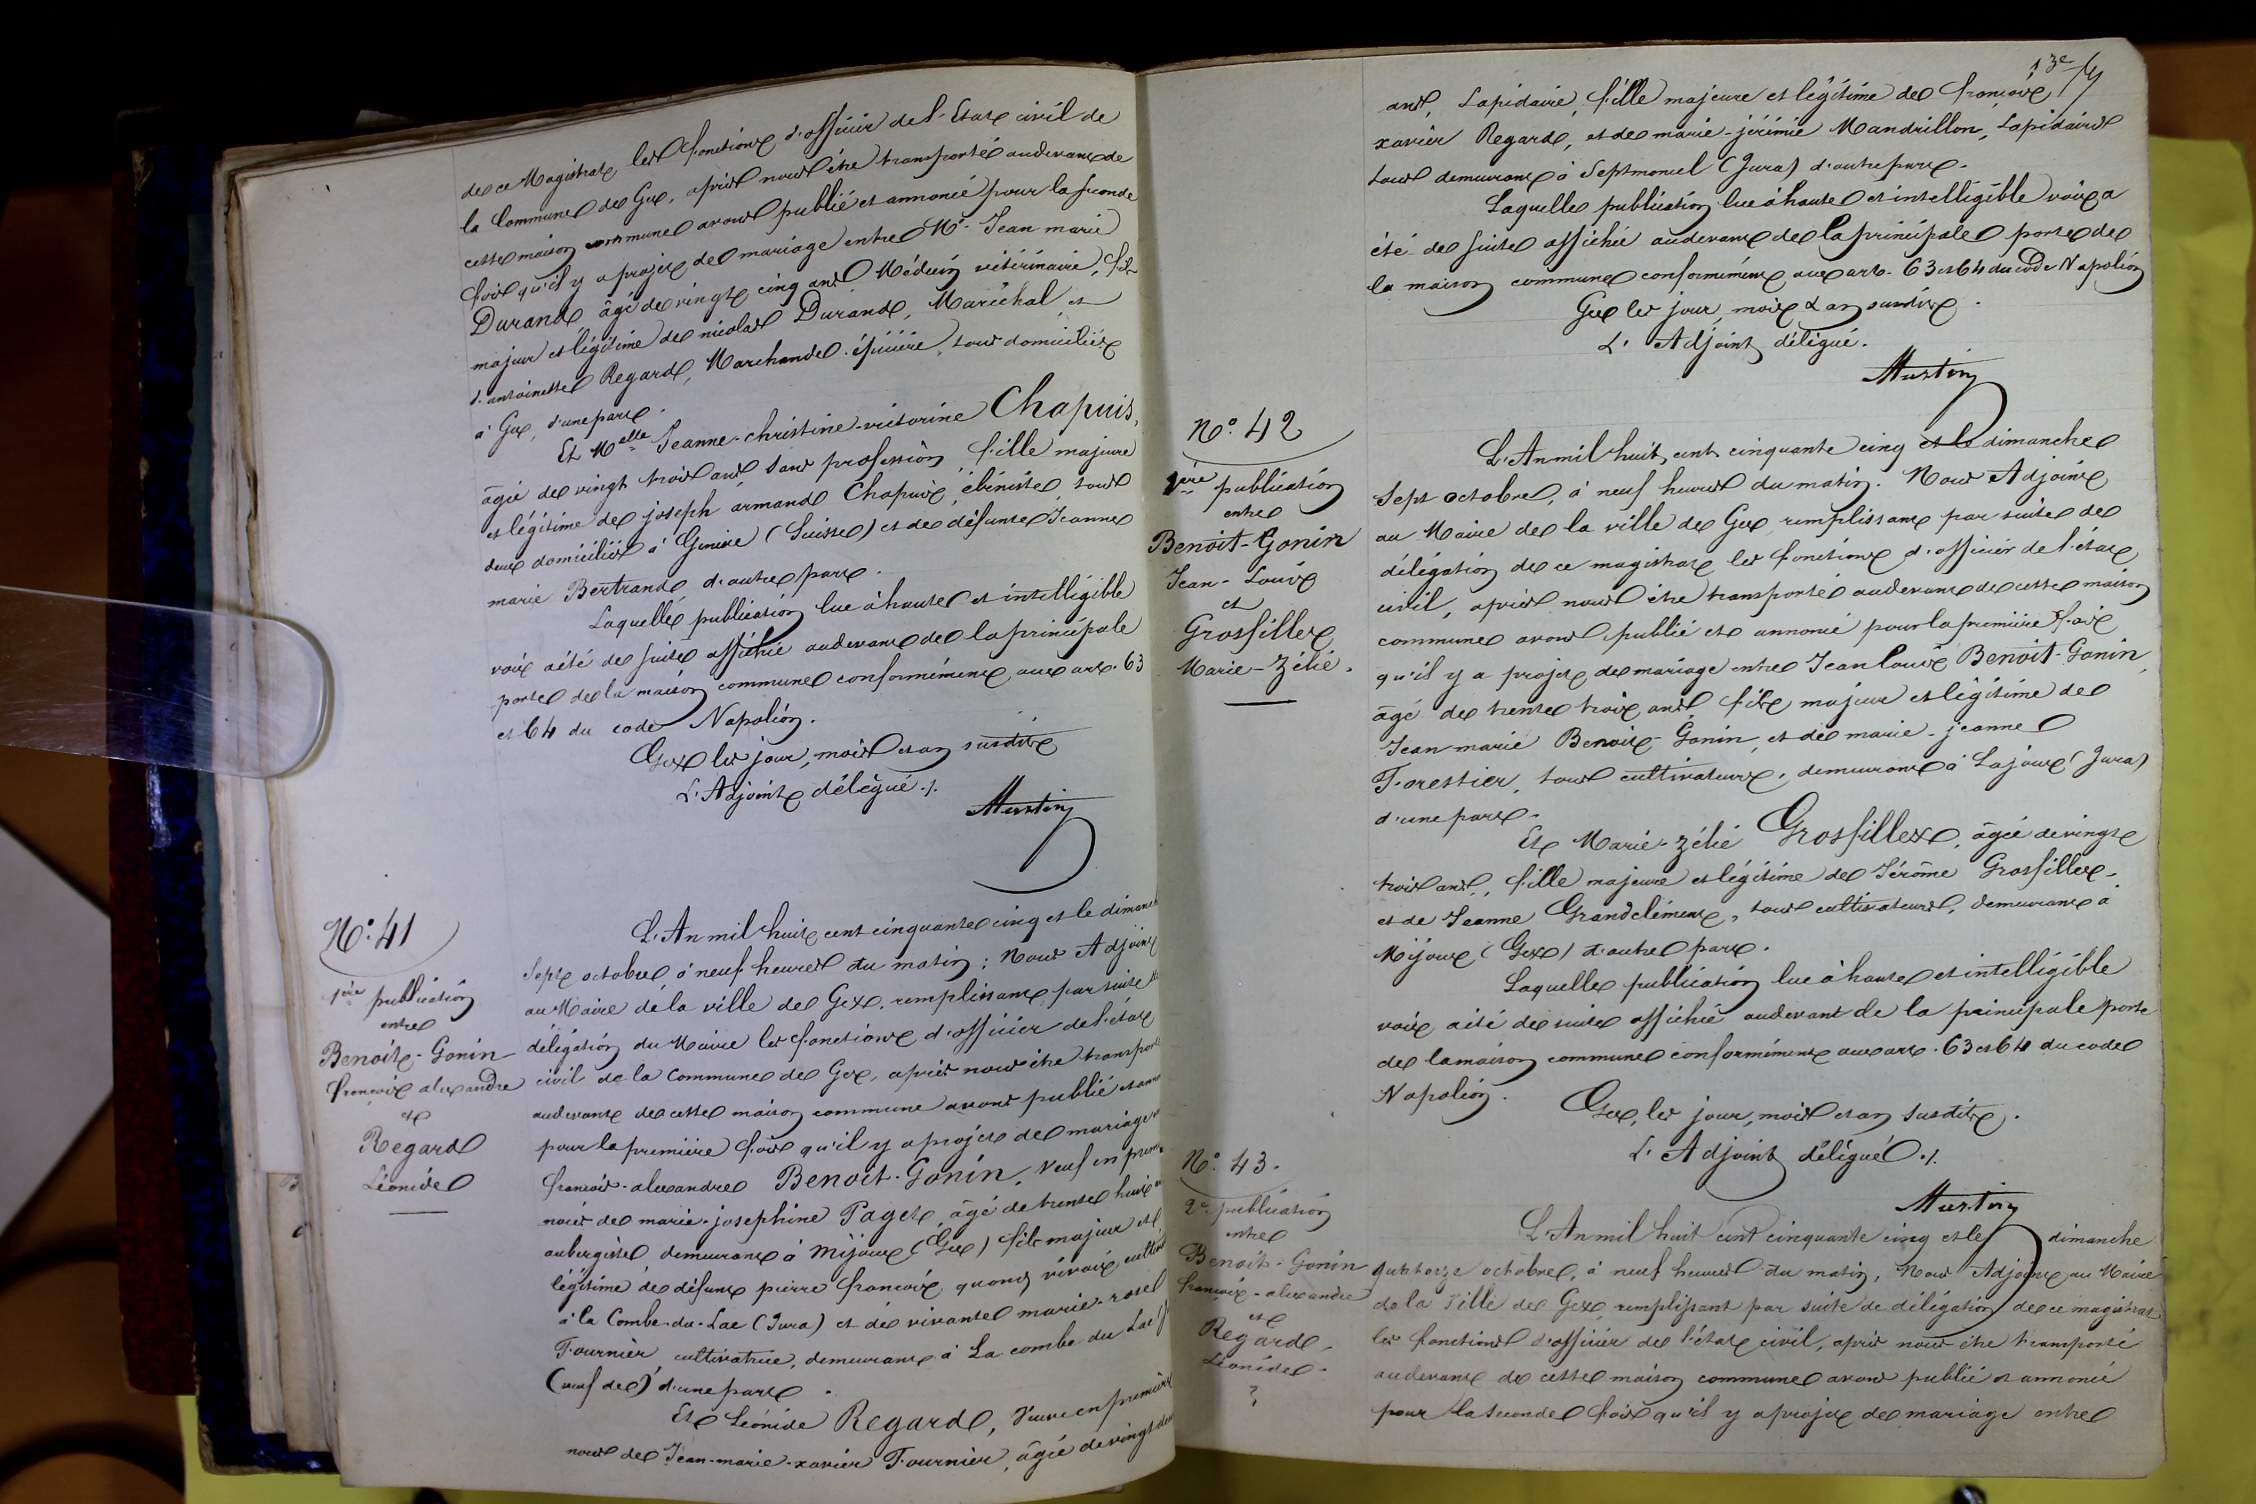 de ce Magistrat les fonctions d'officier de l'Etat civil de
la Commune de Gex, après nous être transporté audevant de
cette maison commune avons publié et annoncé pour la seconde
fois qu'il y a projet de mariage entre Mr. Jean marie
Durand, âgé de vingt cinq ans Médecin vétérinaire, fils
majeur et légitime de nicolas Durand, Maréchal, et
d'antoinette Regard, Marchande épicière, tous domiciliés
à Gex, d'une part.
Et Melle Jeanne-christine-victorine Chapuis,
âgée de vingt trois ans, sans profession, fille majeure
et légitime de joseph armand Chapuis, ébéniste, tous
deux domiciliés à Genève (Suisse) et de défunte Jeanne
marie Bertrand, d'autre part.
Laquelle publication lue à haute et intelligible
voix a été de suite affichée audevant de la principale
porte de la maison commune conformément aux art. 63
et 64 du code Napoléon.
Gex les jour, mois et an susdits
L'Adjoint délégué ./.
Mustin
No. 41
1ère publication
entre
Benoit-Gonin
françois alexandre
et
Regard
Léonide
L'An mil huit cent cinquante cinq et le dimanch
sept octobre à neuf heures du matin ; Nous Adjoint
au Maire de la ville de Gex, remplissant par suite de
délégation du Maire les fonctions d'officier de l'état
civil de la Commune de Gex, après nous être transport
audevant de cette maison commune avons publié et anno
pour la première fois qu'il y a projet de mariage
françois-alexandre Benoit-Gonin, veuf en prem
noces de marie-josephine Paget, âgé de trente huit
aubergiste, demeurant à Mijoux (Gex) fils majeur et
légitime de défunt pierre françois, quand vivait cultiv
à la Combe-du-Lac (Jura) et de vivante marie-rose
Fournier, cultivatrice, demeurant à La combe du Lac
(veuf de) d'une part.
Et Léonide Regard, Veuve en première
noces de Jean-marie-xavier Fournier, âgée de vingt
13e
ans, Lapidaire, fille majeure et légitime de françois
xavier Regard, et de marie-jérémie Mandrillon, Lapidaires
tous demeurant à Septmoncel (Jura) d'autre part.
Laquelle publication lue à haute et intelligible voix a
été de suite affichée audevant de la principale porte de
la maison commune conformément aux art. 63 et 64 du code Napoléon
Gex les jour, mois & an susdits.
L'Adjoint délégué.
Mustin
No. 42
1ère publication
entre
Benoit-Gonin
Jean-Louis
et
Grosfillex
Marie-Zélie.
L'An mil huit cent cinquante cinq et le dimanche
sept octobre, à neuf heures du matin. Nous Adjoint
au Maire de la ville de Gex remplissant par suite de
délégation de ce magistrat les fonctions d'officier de l'état
civil, après nous être transporté audevant de cette maison
commune avons publié et annoncé pour la première fois
qu'il y a projet de mariage entre Jean Louis Benoit-Gonin,
âgé de trente trois ans, fils majeur et légitime de
Jean marie Benoit-Gonin, et de marie-jeanne
Forestier, tous cultivateurs, demeurant à Lajoux (Jura)
d'une part.
Et Marie-Zélie Grosfillex, âgée de vingt
trois ans, fille majeure et légitime de Jérôme Grosfillex,
et de Jeanne Grandclément, tous cultivateurs, demeurant à
Mijoux (Gex) d'autre part.
Laquelle publication lue à haute et intelligible
voix a été de suite affichée audevant de la principale porte
de la maison commune conformément aux art. 63 et 64 du code
Napoléon.
Gex, les jour, mois et an susdits.
L'Adjoint délégué ./.
Mustin
No. 43.
2e publication
entre
Benoit-Gonin
françois-alexandre
et
Regard,
Léonide.
L'An mil huit cent cinquante cinq et le dimanche
quatorze octobre, à neuf heures du matin, Nous Adjoint au Maire
de la Ville de Gex remplissant par suite de délégation de ce magistrat
les fonctions d'officier de l'état civil, après nous être transporté
audevant de cette maison commune avons publié et annoncé
pour la seconde fois qu'il y a projet de mariage entre